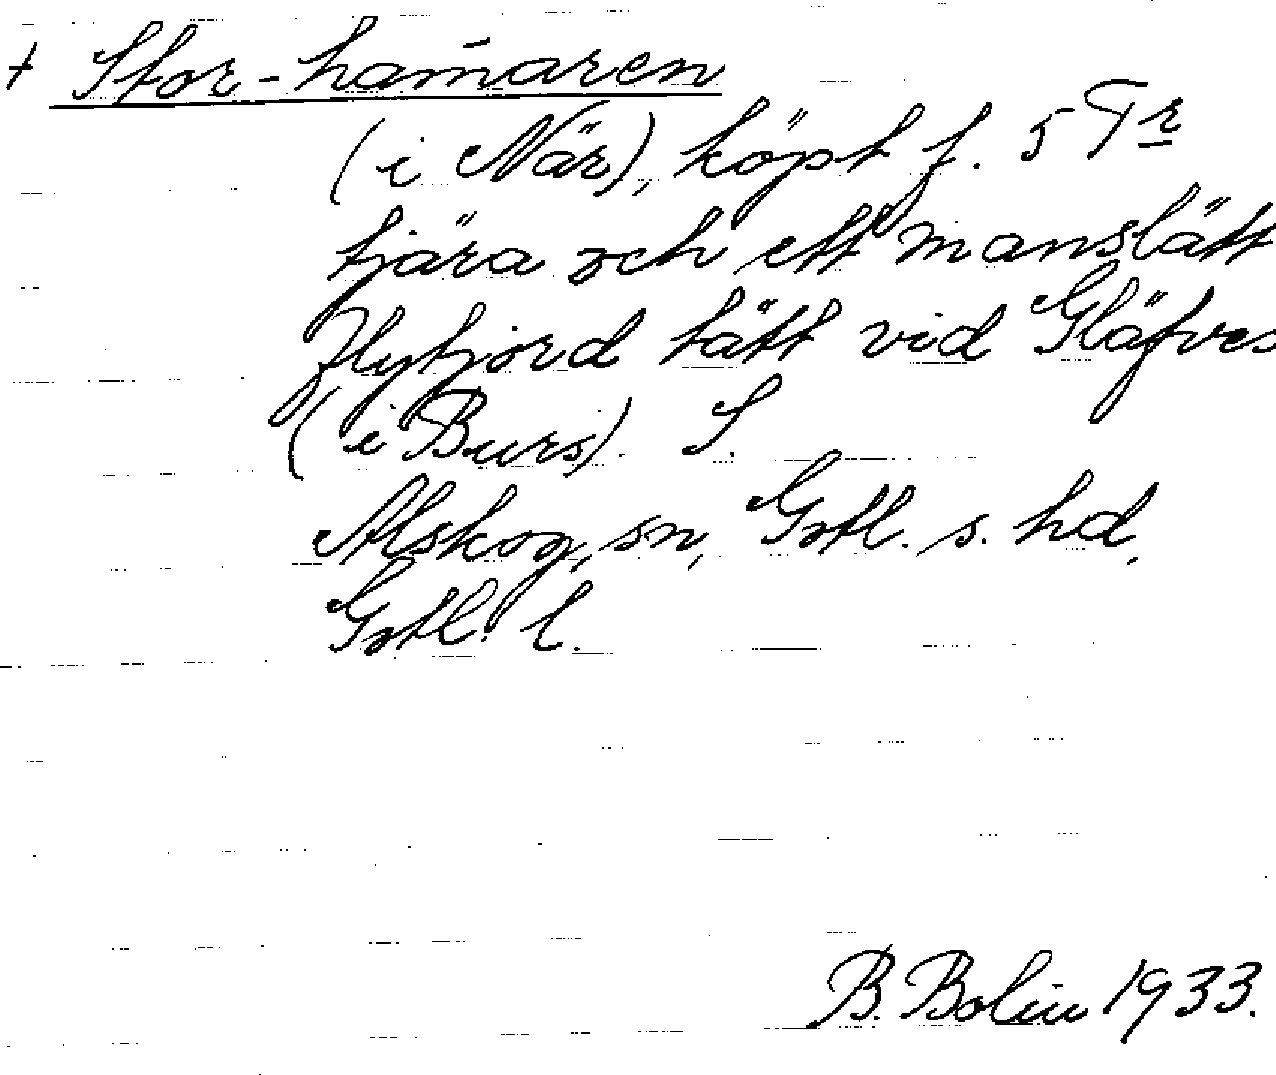 + Stor-ham̄aren
(i När), köpt f. 5 Tr
tjära och ett manslätt
flytjord tätt vid Gläfves
(i Burs). S.
Alskog, sn, Gotl. s. hd,
Gotl. l.
B. Bolin 1933.